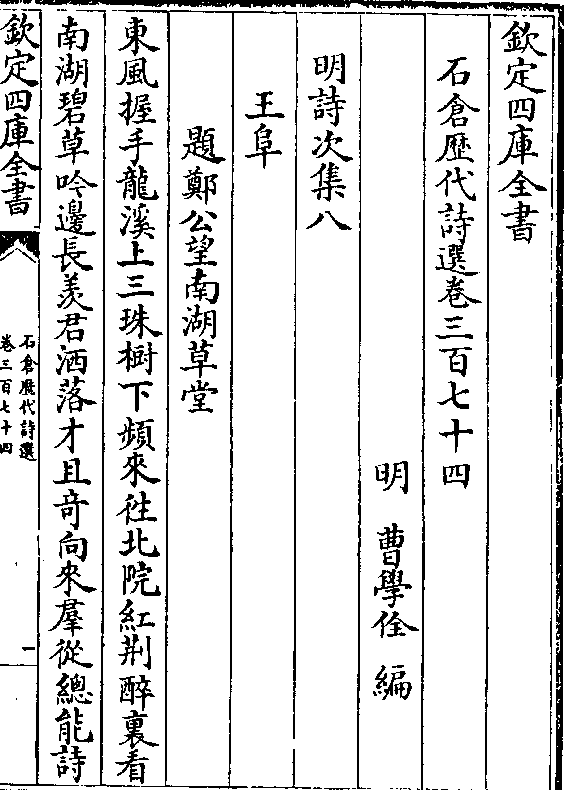 欽定四庫全書
石倉歷代詩選卷三百七十四
明 曹學佺 編
明詩次集八
王阜
題鄭公望南湖草堂
東風握手龍溪上三珠樹下頻來徃北院紅荆醉裏看
南湖碧草吟邊長羨君洒落才且竒向來羣從總能詩
欽定四庫全書
石倉歷代詩選
卷三百七十四
一